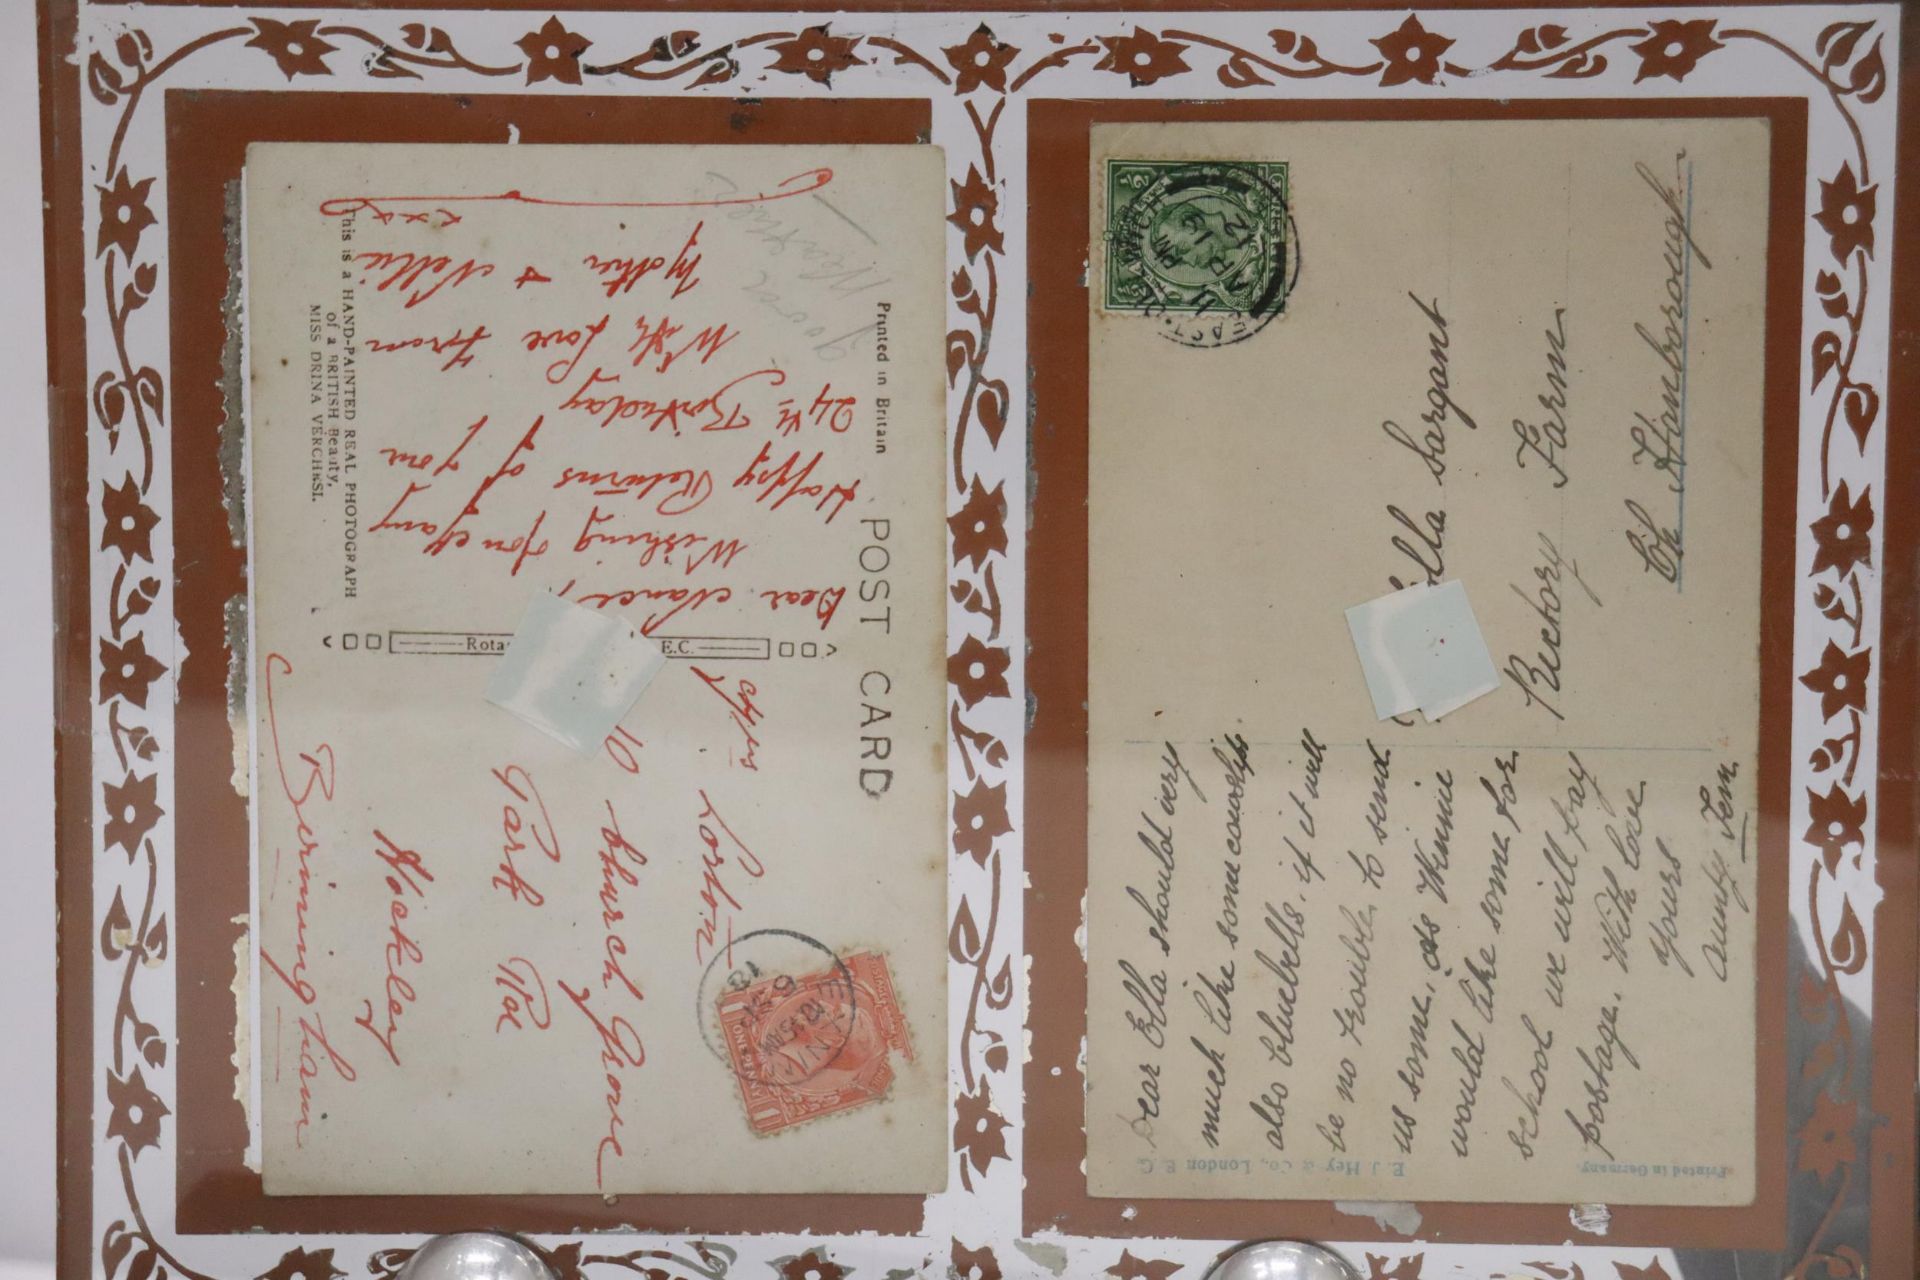 POST CARD
Printed in Britain
This is a HAND-PAINTED REAL PHOTOGRAPH
of a BRITISH Beauty,
MISS DRINA VERCHESI.
Rota
E.C.
Dear Nance,
Wishing you Many
Happy Returns of your
24th Birthday
With Love from
Mother & Nellie
xxx
Lorton
10 Church Grove
Park Rd
Hockley
Birmingham
ONE PENNY
10.15 AM
18
EAST GREENWICH
11 PM
AP 19
12
Dear Ella should very
much like some cowslips
also bluebells, if it will
be no trouble to send
us some, as Winnie
would like some for
school we will pay
postage. With love
yours
Aunty Tem
Ella Sargant
Farm
Ch Hanborough
E. J. Hey & Co., London E.C.
Printed in Germany